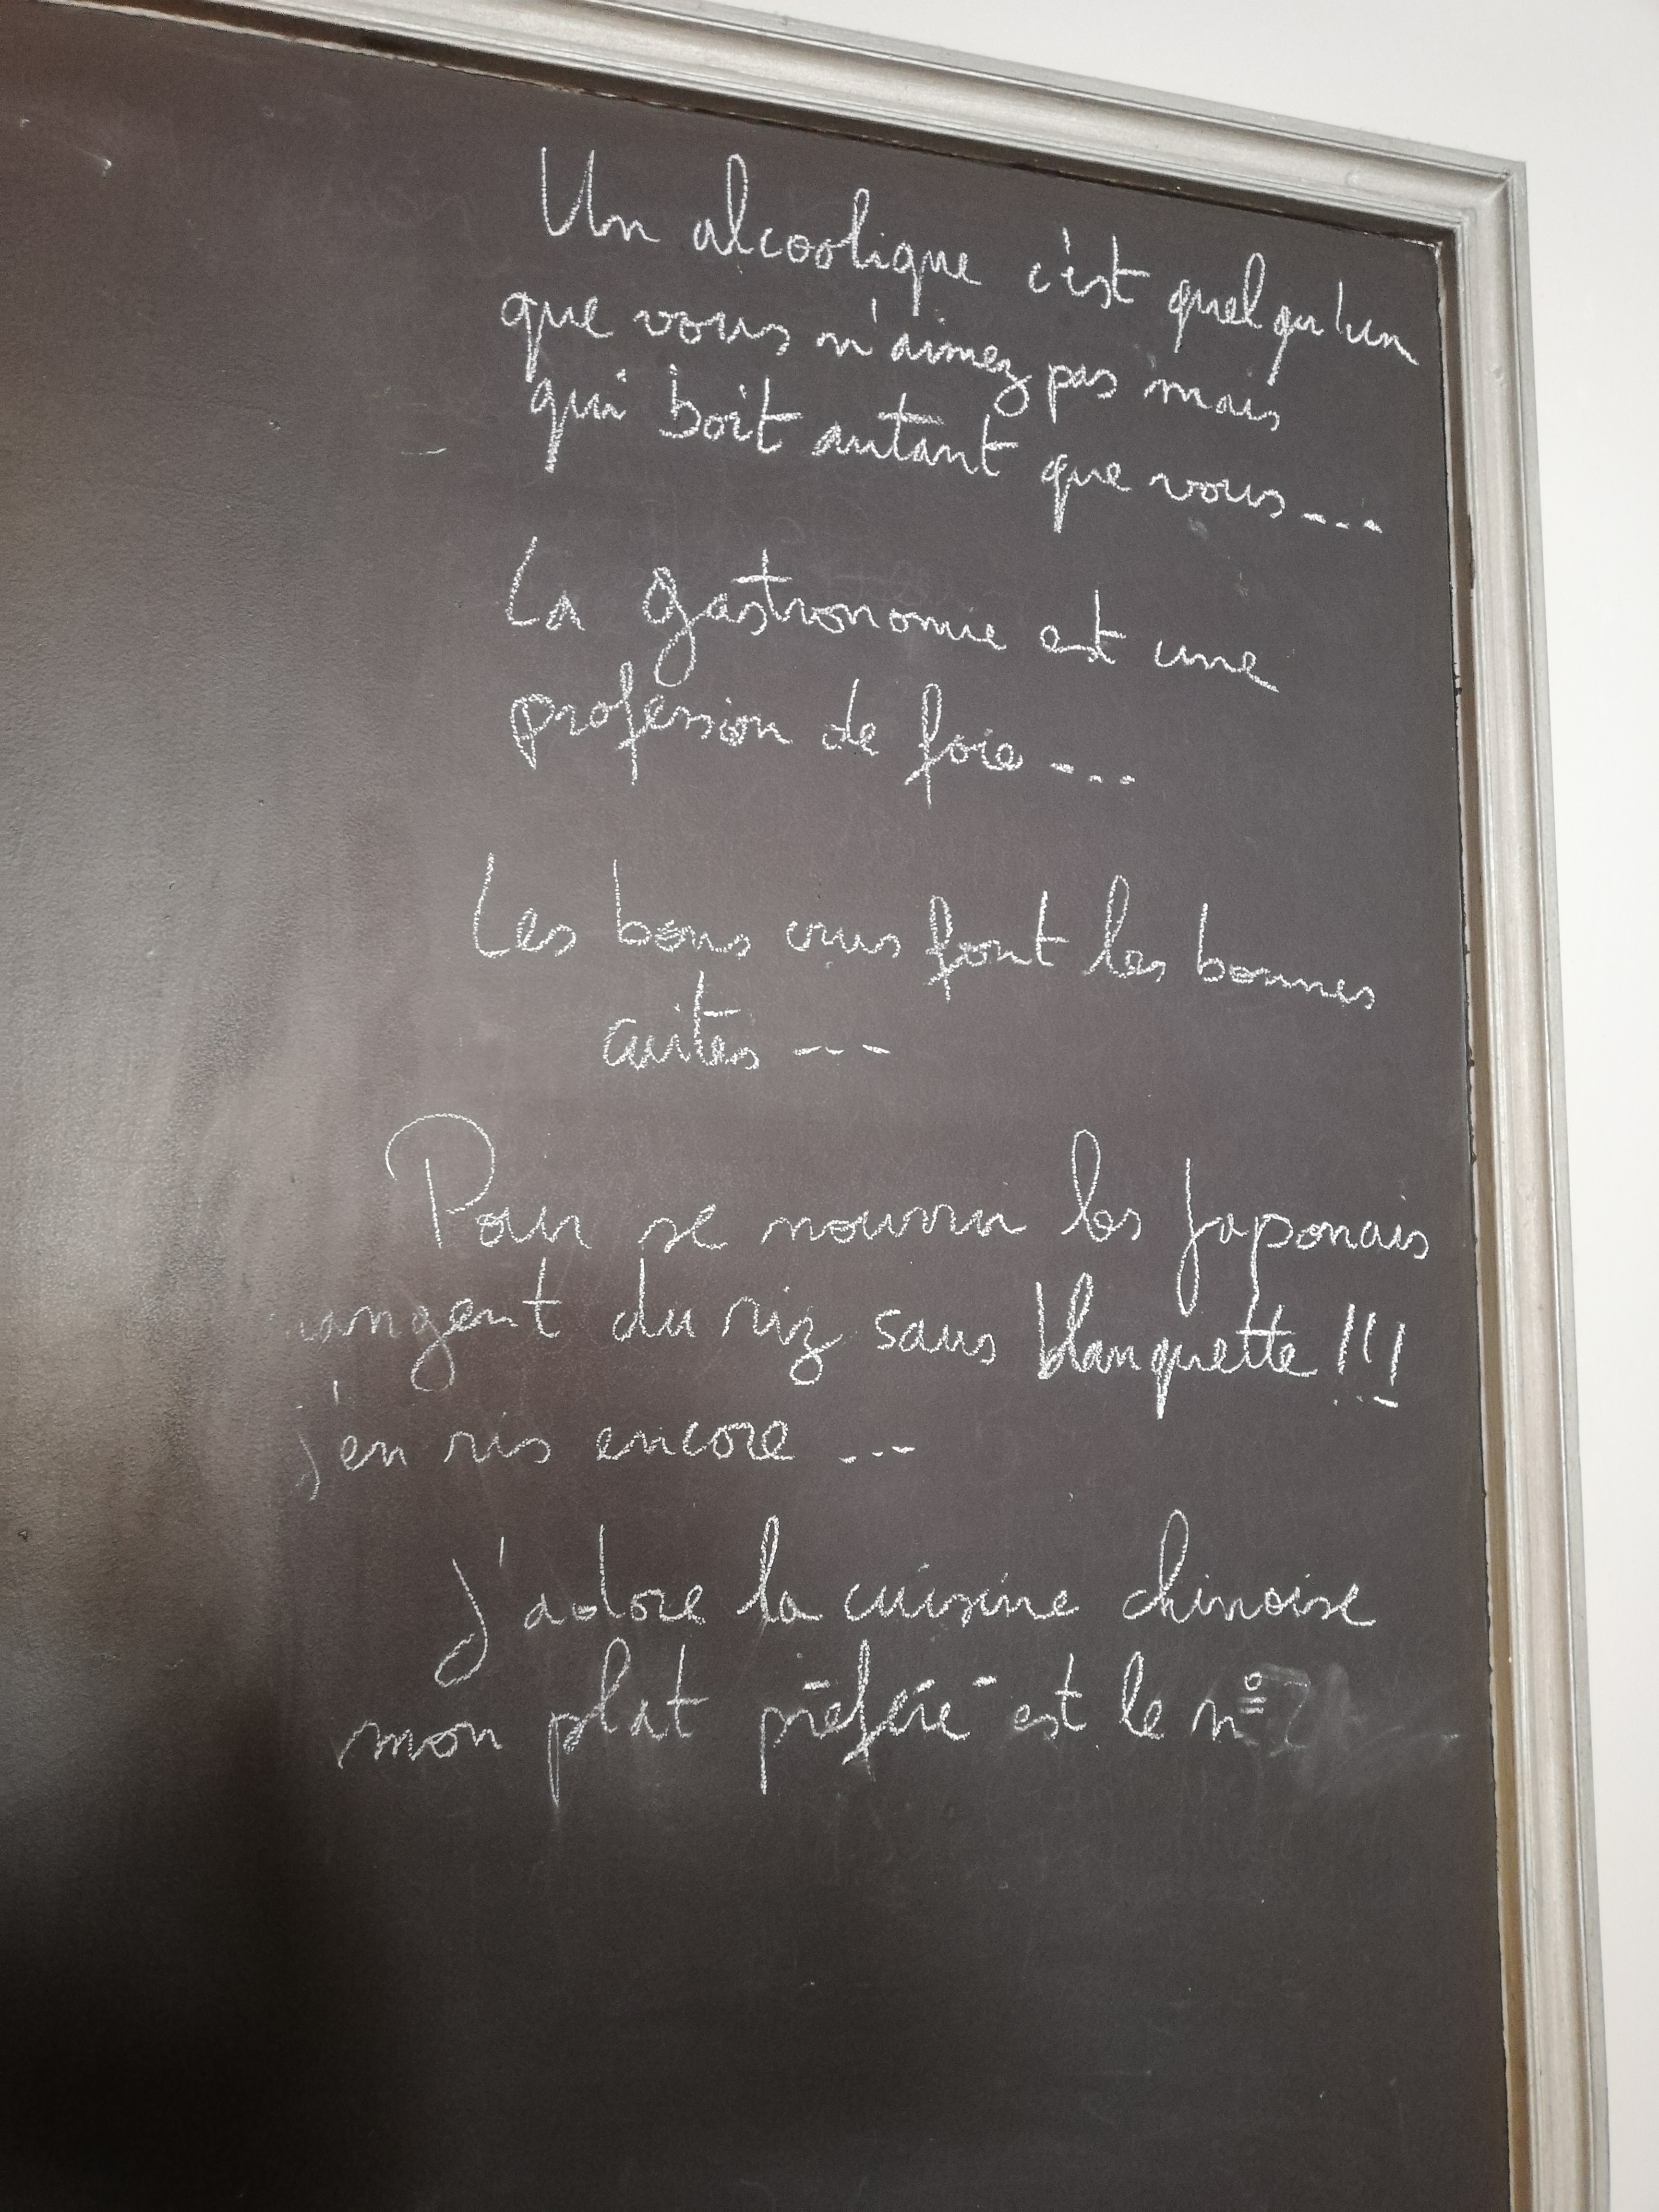 Un alcoolique c'est quelqu'un
que vous n'aimez pas mais
qui boit autant que vous...
La gastronomie est une
profession de foie...
Les bons crus font les bonnes
cuites ---
Pour se nourrir les Japonais
mangent du riz sans blanquette !!!
j'en ris encore ...
J'adore la cuisine chinoise
mon plat préféré est le n°